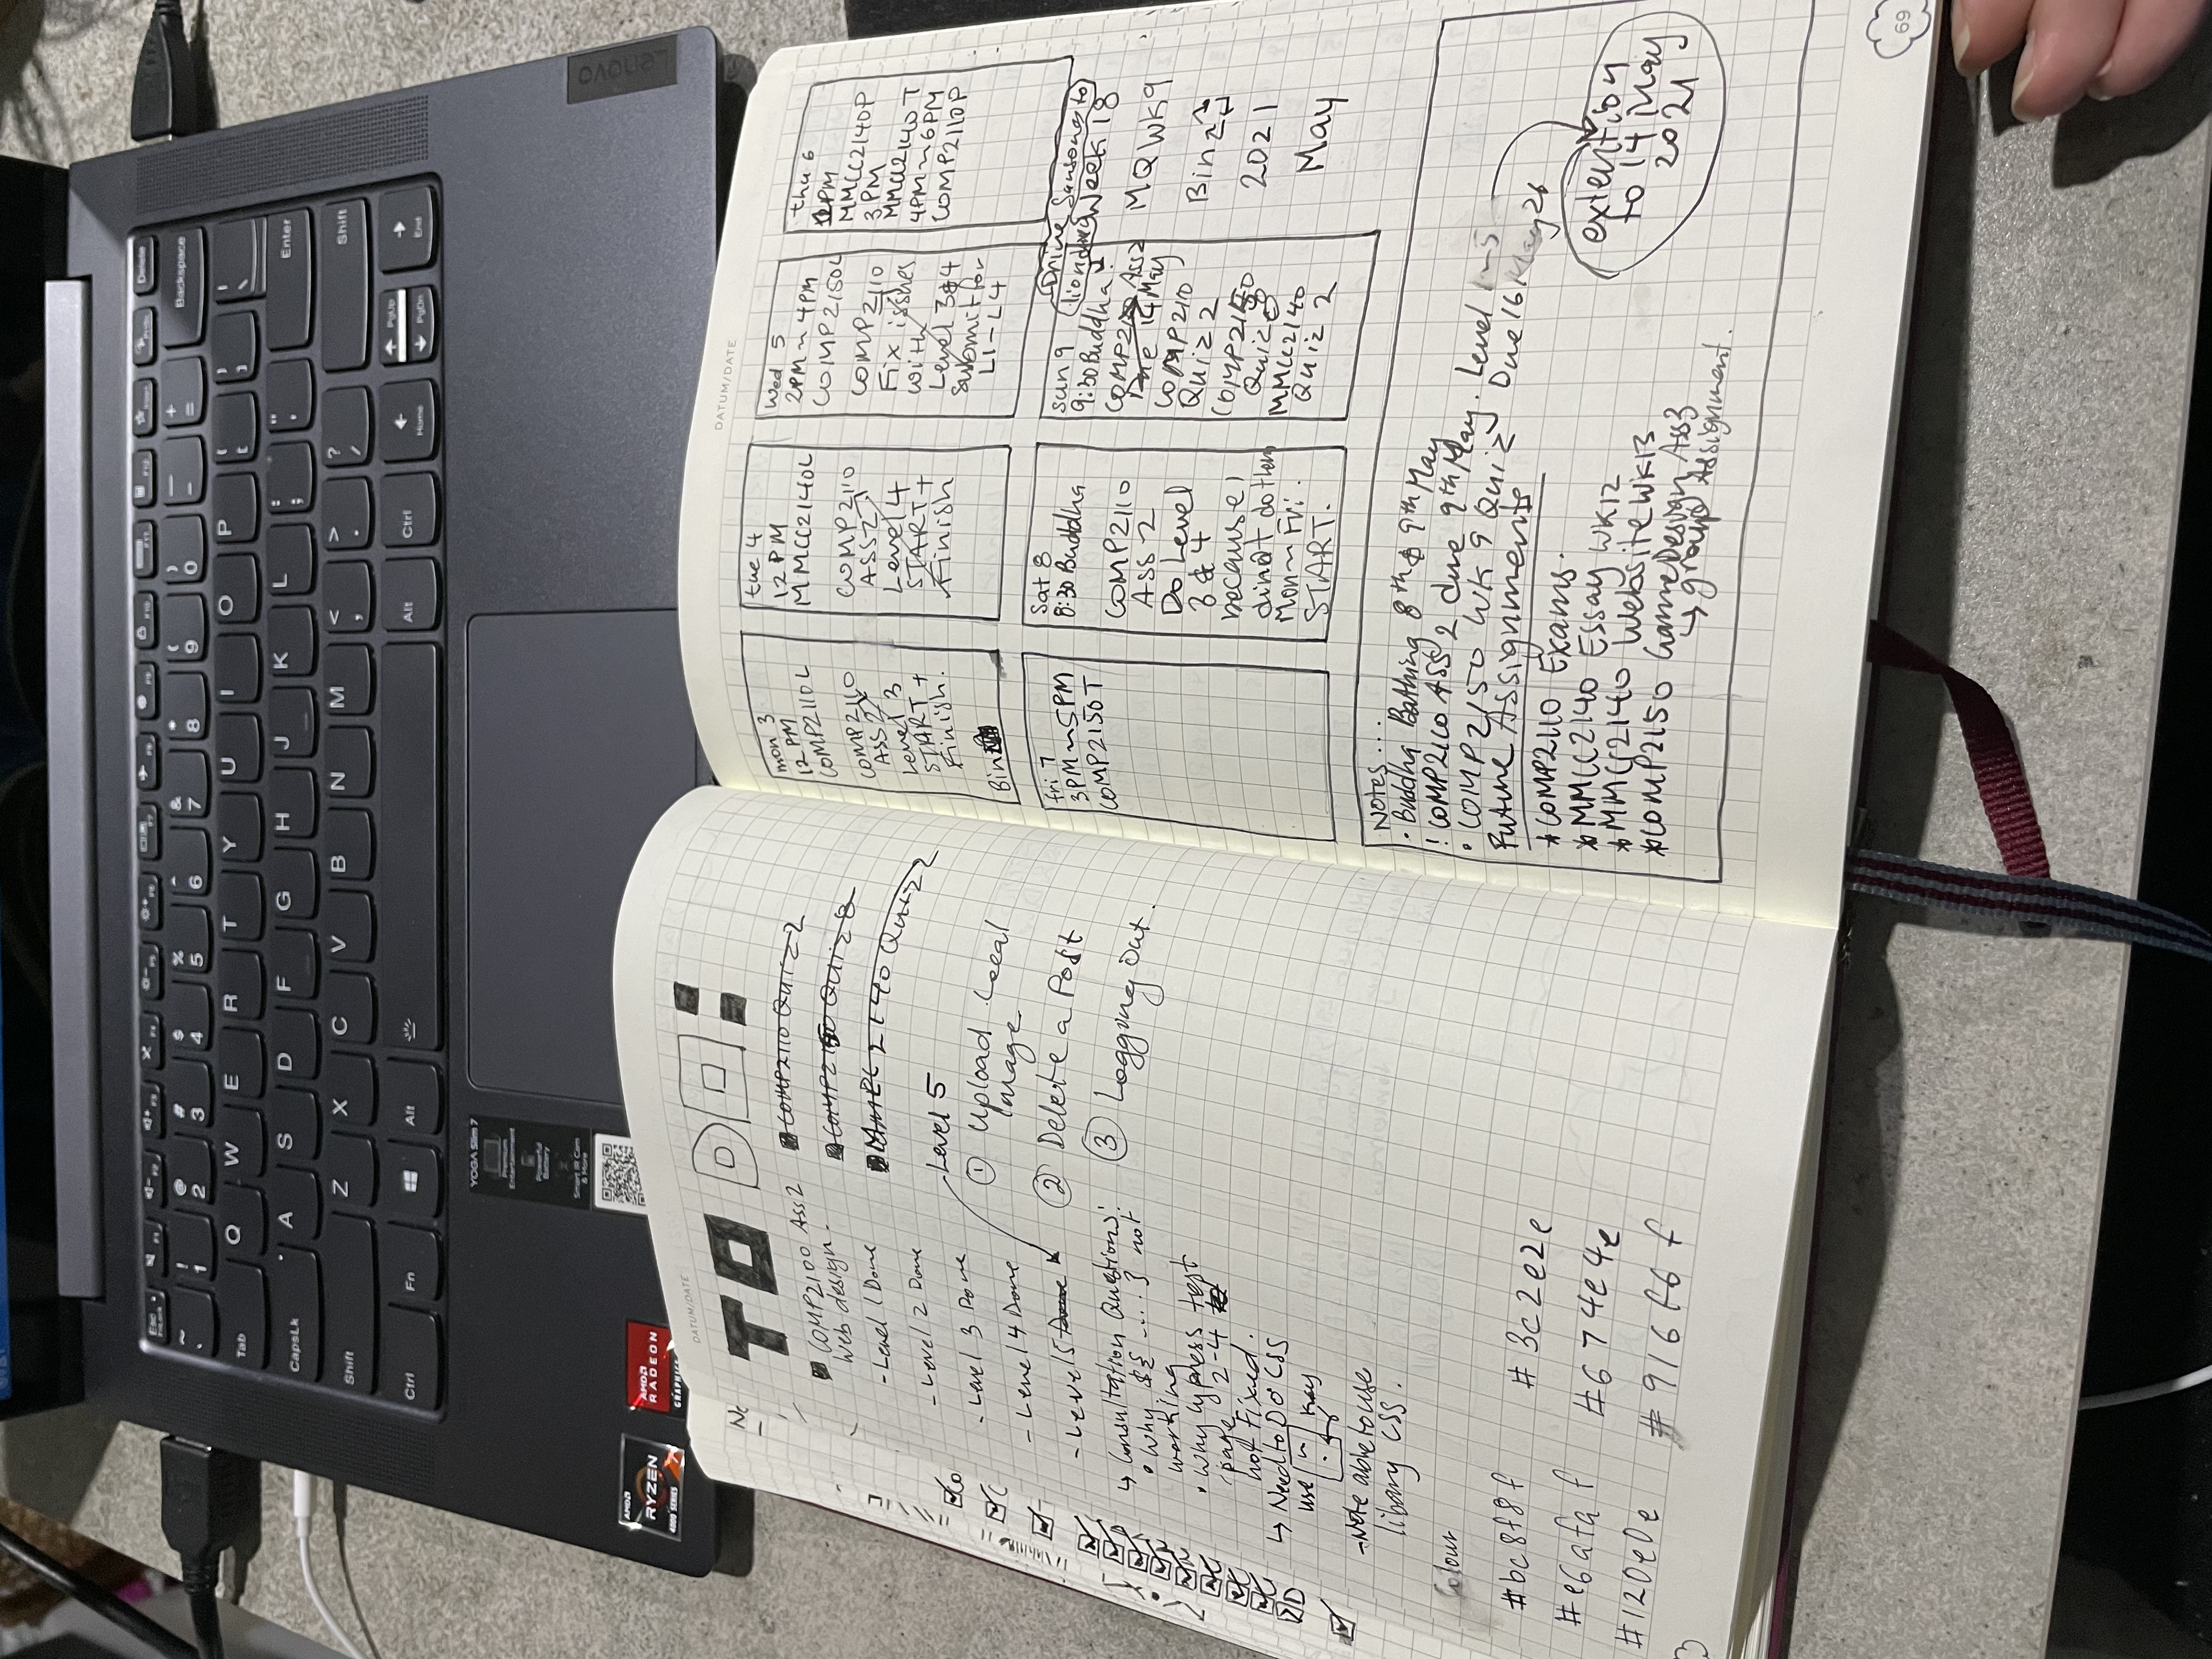 Esc
FnLock
F1
F2
F3
F4
F5
F6
F7
F8
F9
F10
F11
F12
Insert
PrtSc
Delete
~
! 1
@ 2
# 3
$ 4
% 5
^ 6
& 7
* 8
( 9
) 0
— -
+ =
Backspace
Tab
Q W E R T Y U I O P { [ } ] | \
CapsLk
A S D F G H J K L : ; " '
Enter
Shift
Z X C V B N M < , > . ? /
Shift
Ctrl
Fn
Alt
Alt
Ctrl
Home
PgUp
PgDn
End
YOGA Slim 7
Premium
Entertainment
Powerful
Battery
Smart IR Cam
& More
AMD
RYZEN
4000 SERIES
AMD
RADEON
GRAPHICS
Lenovo
DATUM/DATE
TO DO:
COMP2100 Ass2
Web design.
- Level 1 Done
- Level 2 Done
- Level 3 Done
- Level 4 Done
- Level 5 Done
↳ Consultation Questions!
• Why ${ .... } not
working
• Why Cypress test
page 2-4
not Fixed.
↳ Need to Do CSS
use key
- Note able to use
libary CSS.
COMP2110 Quiz 2
COMP2150 Quiz 8
MMCC2140 Quiz 2
Level 5
① Upload Local
Image
② Delete a Post
③ Logging out.
Colour
#bc8f8f
#3c2e2e
#e6afaf
#674e4e
#120e0e
#916f6f
DATUM/DATE
mon 3
12 PM
COMP2110L
COMP2110
ASS 2
Level 3
START +
Finish.
Bin
tue 4
12 PM
MMCC2140L
COMP2110
ASS2
Level 4
START +
Finish
Wed 5
2PM ~ 4PM
COMP2150L
COMP2110
Fix issues
with
Level 3&4
Submit for
L1-L4
thu 6
PM
MMCC2140P
3 PM
MMCC2140 T
4PM ~ 6PM
COMP2110P
fri 7
3PM ~ 5PM
COMP2150T
Sat 8
8:30 Buddha
COMP2110
Ass 2
Do Level
3 & 4
because I
din@t do them
Mon ~ Fri.
START.
sun 9
9:30 Buddha!
COMP2110 Ass2
Due 14 May
COMP2110
Quiz 2
COMP2150
Quiz 8
MMCC2140
Quiz 2
Week 18
MQ WK9
Bin
2021
May
Notes ...
• Buddha Bathing 8th & 9th May
! COMP2110 ASS 2 due 9th May. Level 1-5
• COMP2150 WK 9 Quiz Due 16 May
Future Assignments
* COMP2110 Exams.
* MMCC2140 Essay WK12
* MMCC2140 Website WK13
* COMP2150 Game Design Ass3
↳ group Assignment.
extention
to 14 May
2021
69